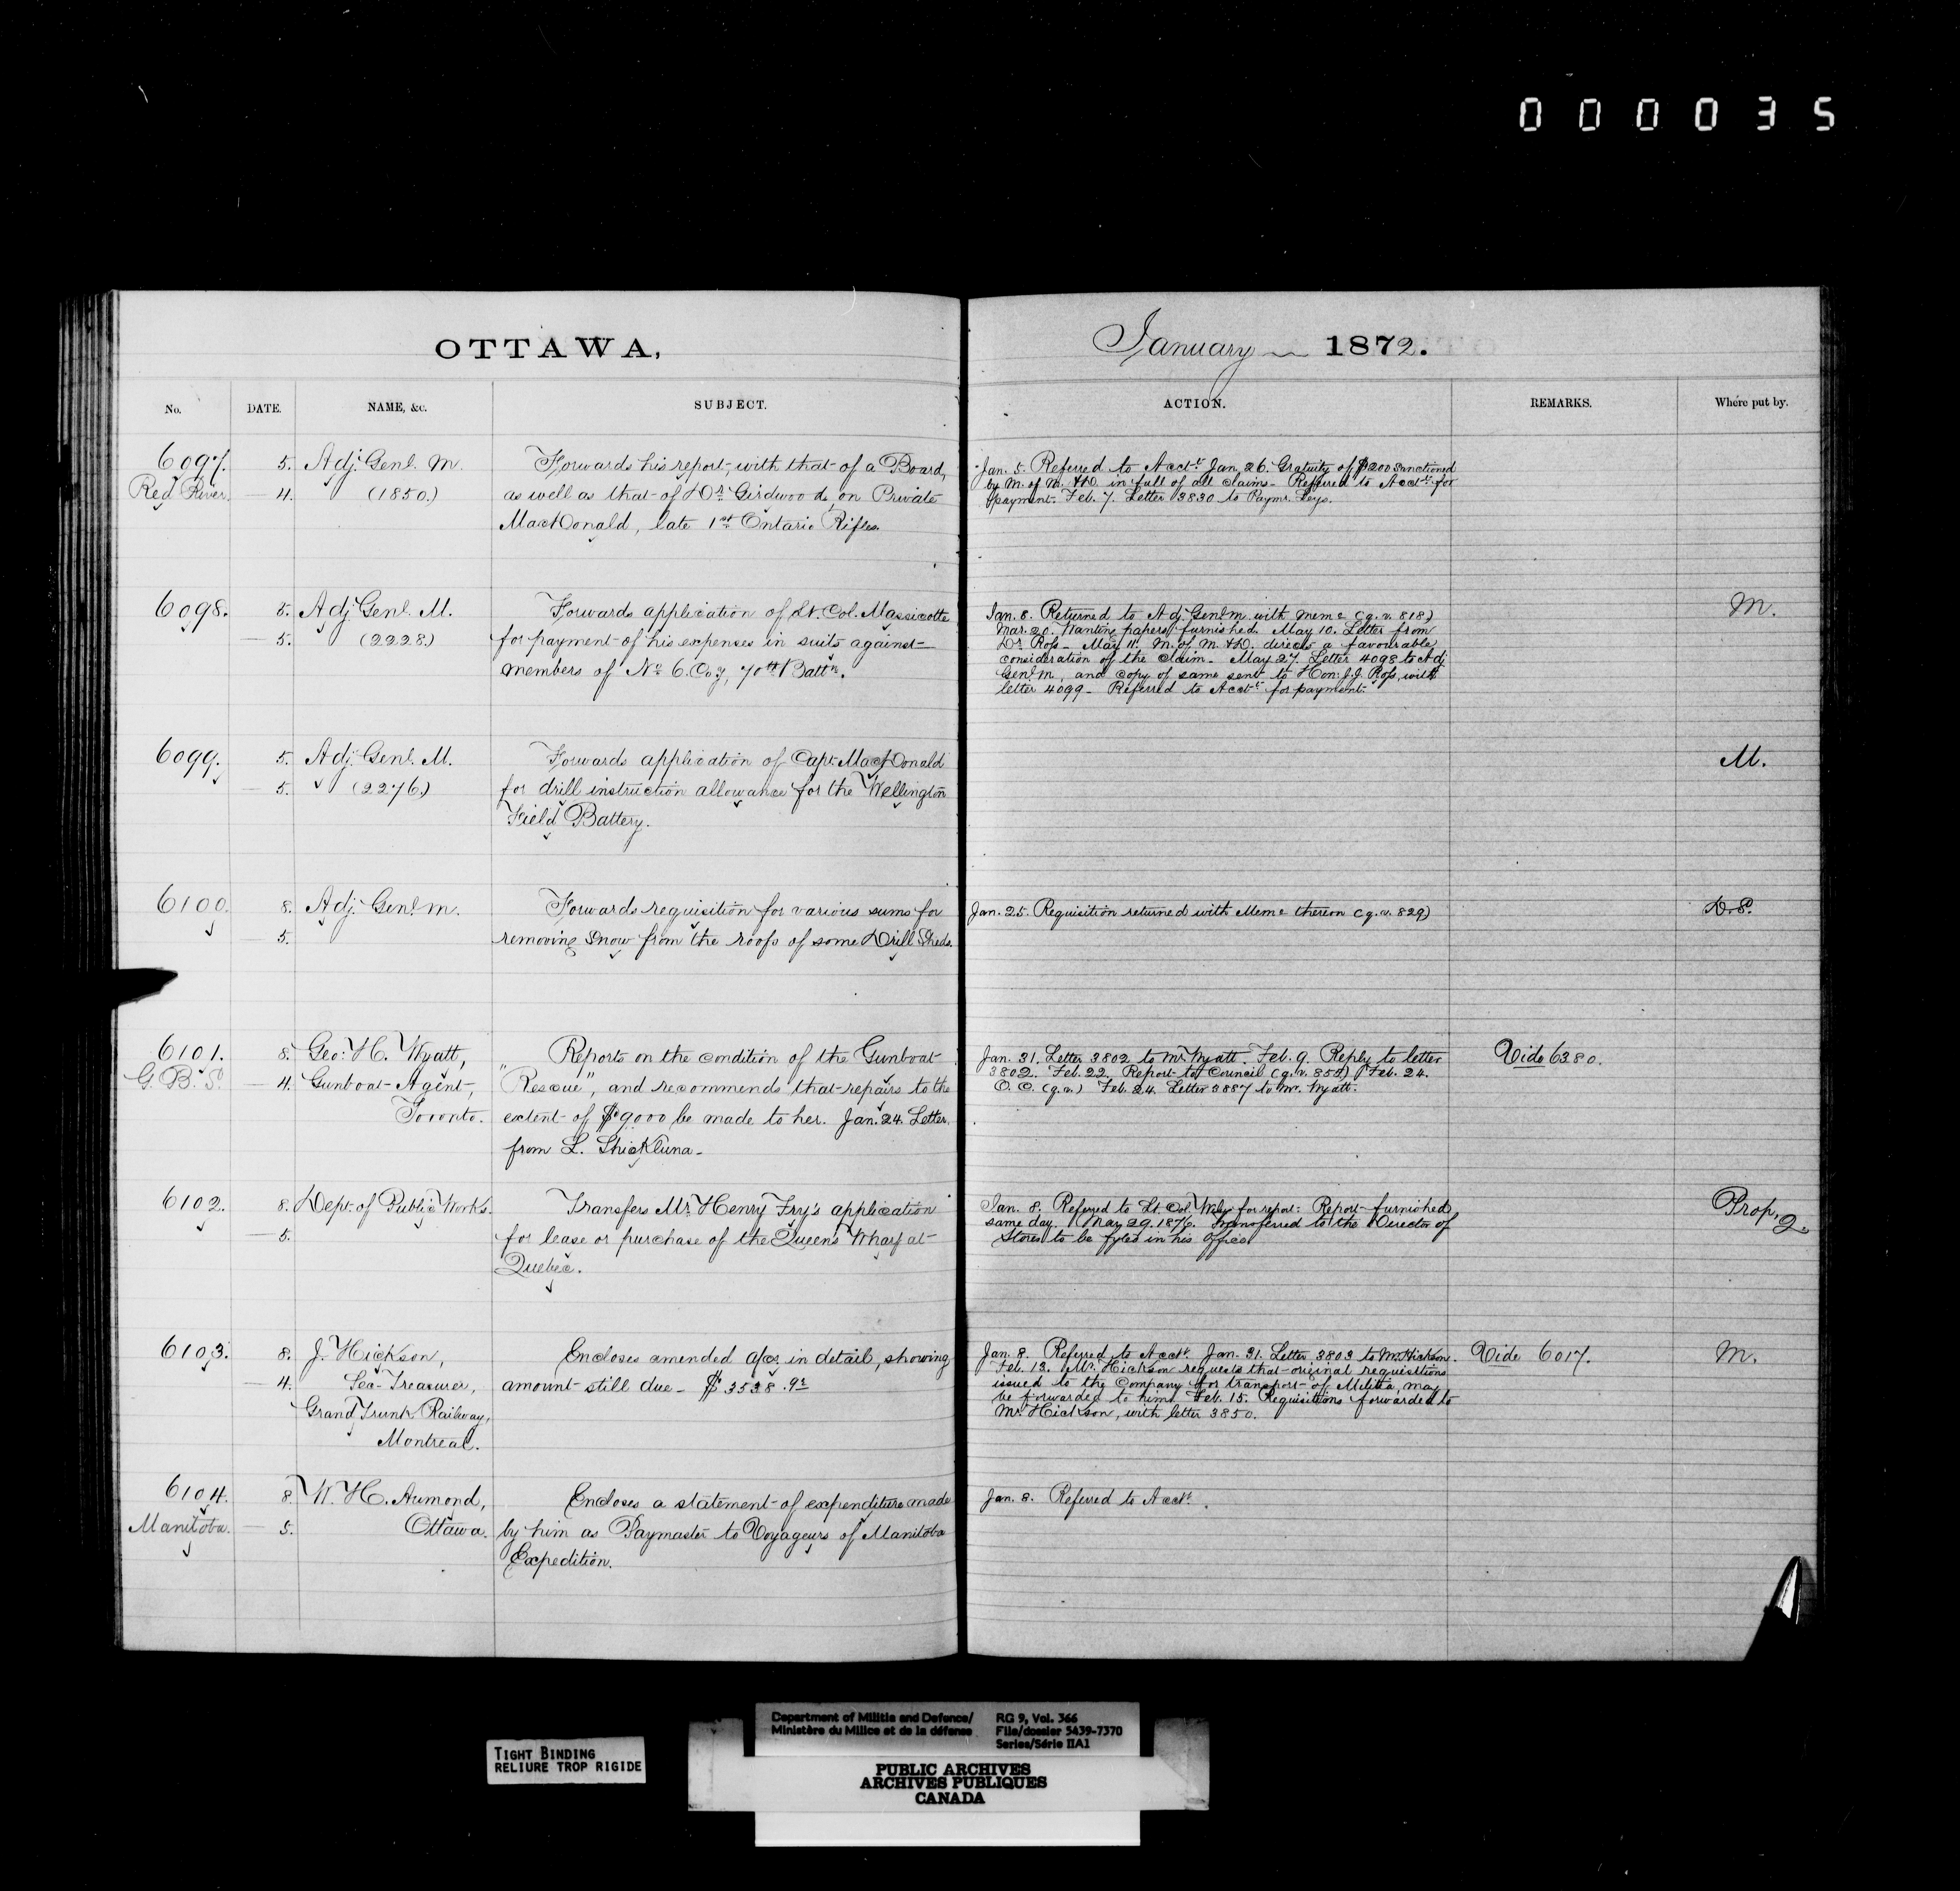 000035
OTTAWA,
January 1872.
No. DATE. NAME, &c. SUBJECT. ACTION. REMARKS. Where put by.
6097. 5. Adj. Genl. M. Forwards his report, with that of a Board,
Red River. — 4. (1850.) as well as that of Dr. Girdwood, on Private
MacDonald, late 1st Ontario Rifles.
Jan. 5. Referred to Acctt. Jan. 26. Gratuity of $200 sanctioned
by M. of M. & D. in full of all claims — Referred to Acctt. for
payment. Feb. 7. Letter 3830 to Paymr. Leys.
6098. 5. Adj. Genl. M. Forwards application of Lt. Col. Massicotte
— 5. (2228.) for payment of his expenses in suits against
members of No. 6. Coy, 70th Battn.
Jan. 8. Returned to Adj. Genl. M. with Memo (q.v. 818)
Mar. 20. Wanting papers furnished. May 10. Letter from
Dr. Ross — May 11. M. of M. & D. directs a favourable
consideration of the claim — May 27. Letter 4098 to Adj.
Genl. M., and copy of same sent to Hon: J.J. Ross, with
letter 4099 — Referred to Acctt. for payment.
M.
6099. 5. Adj. Genl. M. Forwards application of Capt. MacDonald
— 5. (2276.) for drill instruction allowance for the Wellington
Field Battery.
M.
6100. 8. Adj. Genl. M. Forwards requisition for various sums for
— 5. removing snow from the roofs of some Drill Sheds.
Jan. 25. Requisition returned with Memo thereon (q.v. 829)
D.S.
6101. 8. Geo: H. Wyatt, Reports on the condition of the Gunboat
G.B.S. — 4. Gunboat Agent, "Rescue", and recommends that repairs to the
Toronto. extent of $9000 be made to her. Jan. 24. Letter
from L. Shickluna —
Jan. 31. Letter 3802 to Mr. Wyatt. Feb. 9. Reply to letter
3802. Feb. 22. Report to Council (q.v. 855) Feb. 24.
O.C. (q.v.) Feb. 24. Letter 3887 to Mr. Wyatt.
Vide 6380.
6102. 8. Dept. of Public Works. Transfers Mr. Henry Fry's application
— 5. for lease or purchase of the Queen's Wharf at
Quebec.
Jan. 8. Referred to Lt. Col. Wily for report: Report furnished
same day. May 29. 1876. Transferred to the Director of
Stores to be fyled in his Office.
Prop, 2.
6103. 8. J. Hickson, Encloses amended a/cs. in detail, showing
— 4. Sec-Treasurer, amount still due — $3538.92
Grand Trunk Railway,
Montreal.
Jan. 8. Referred to Acctt. Jan. 31. Letter 3803 to Mr. Hickson.
Feb. 13. Mr. Hickson requests that original requisitions
issued to the Company for transport of Militia, may
be forwarded to him. Feb. 15. Requisitions forwarded to
Mr. Hickson, with letter 3850.
Vide 6017.
M.
6104. 8. W. H. Aumond, Encloses a statement of expenditure made
Manitoba. — 5. Ottawa. by him as Paymaster to Voyageurs of Manitoba
Expedition.
Jan. 8. Referred to Acctt.
TIGHT BINDING
RELIURE TROP RIGIDE
Department of Militia and Defence/
Ministère du Milice et de la défense
RG 9, Vol. 366
File/dossier 5439-7370
Series/Série IIA1
PUBLIC ARCHIVES
ARCHIVES PUBLIQUES
CANADA